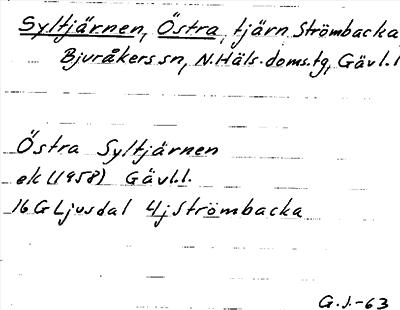 Syltjärnen, Östra, tjärn Strömbacka
Bjuråkers sn, N. Häls. doms. tg, Gävl. l
Östra Syltjärnen
ek (1958) Gävl.l.
16G Ljusdal 4j Strömbacka
G.J.-63